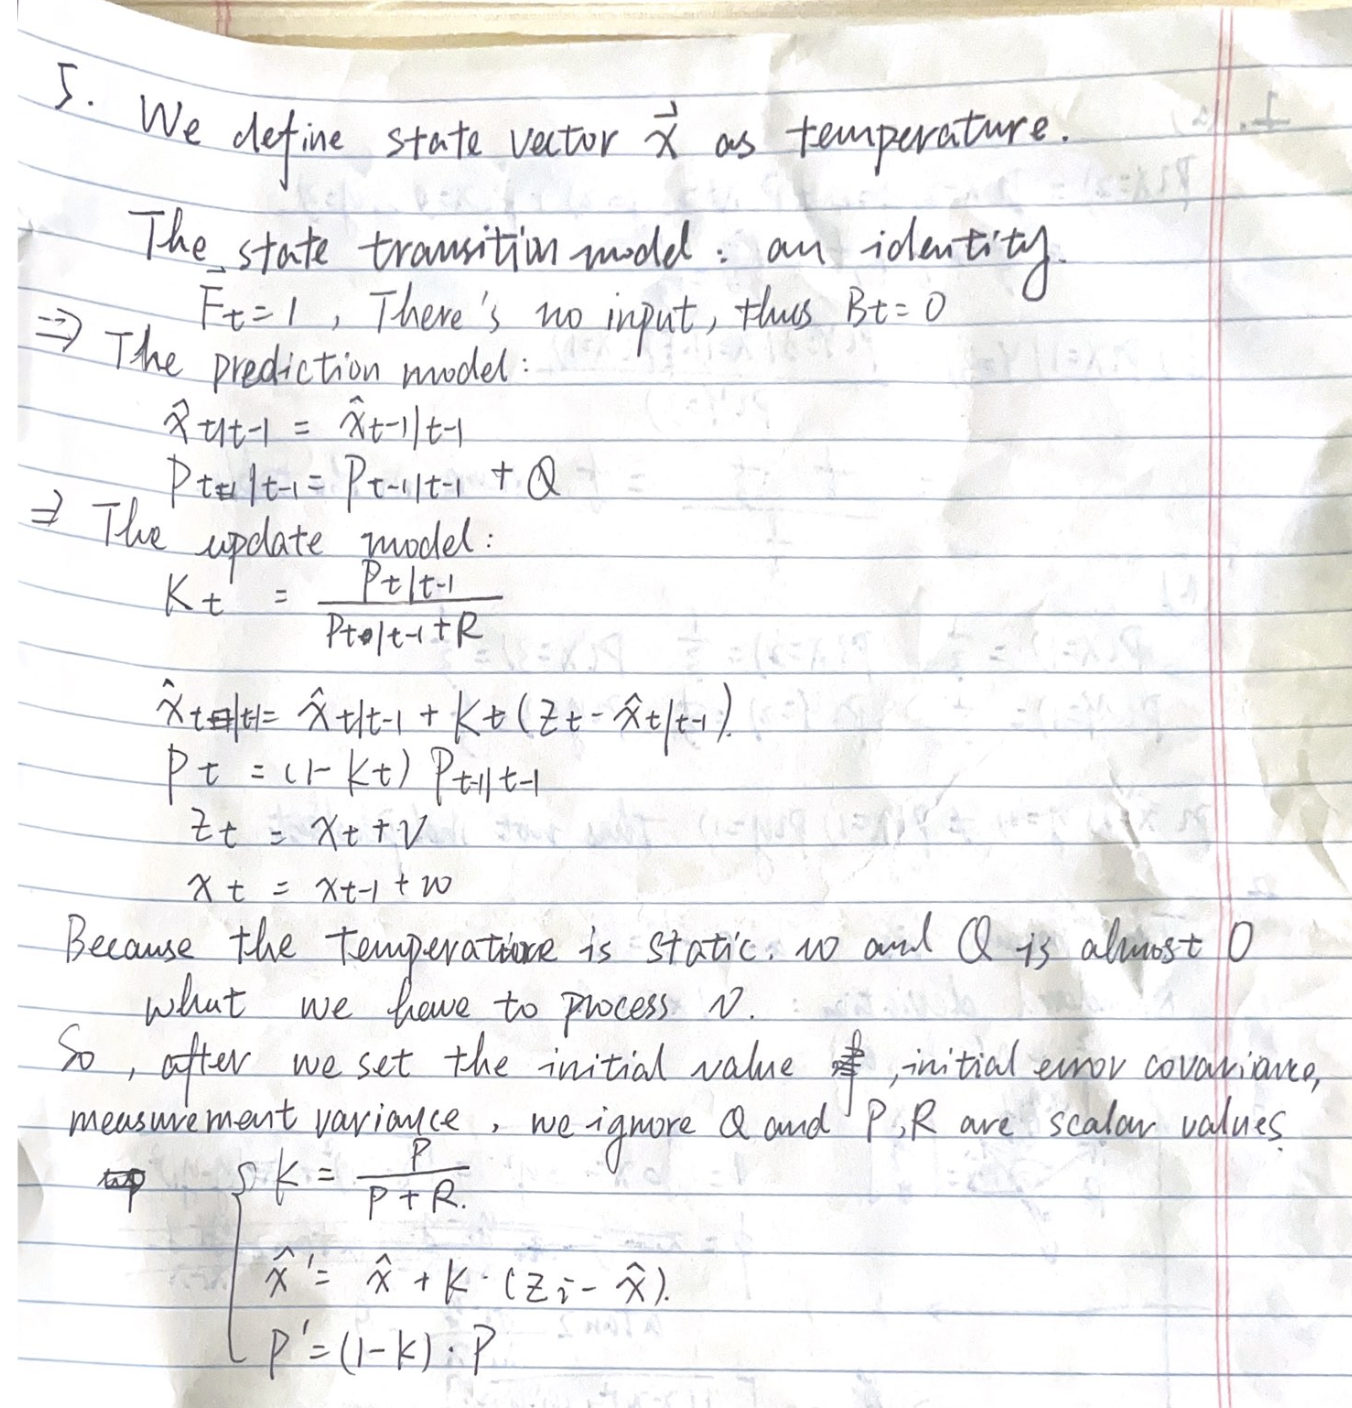 5. We define state vector x⃗ as temperature.
The state transition model: an identity.
Ft=1, There's no input, thus Bt=0
=> The prediction model:
x̂t|t-1 = x̂t-1|t-1
Pt|t-1 = Pt-1|t-1 + Q
=> The update model:
Kt = Pt|t-1 / (Pt|t-1+R)
x̂t|t = x̂t|t-1 + Kt(Zt - x̂t|t-1).
Pt = (1-Kt) Pt-1|t-1
Zt = Xt+V
Xt = Xt-1 + w
Because the temperature is static. w and Q is almost 0
what we have to process V.
So, after we set the initial value, initial error covariance,
measurement variance, we ignore Q and P,R are scalar values.
K = P / (P+R).
x̂' = x̂ + K·(Zi - x̂).
P' = (1-K)·P